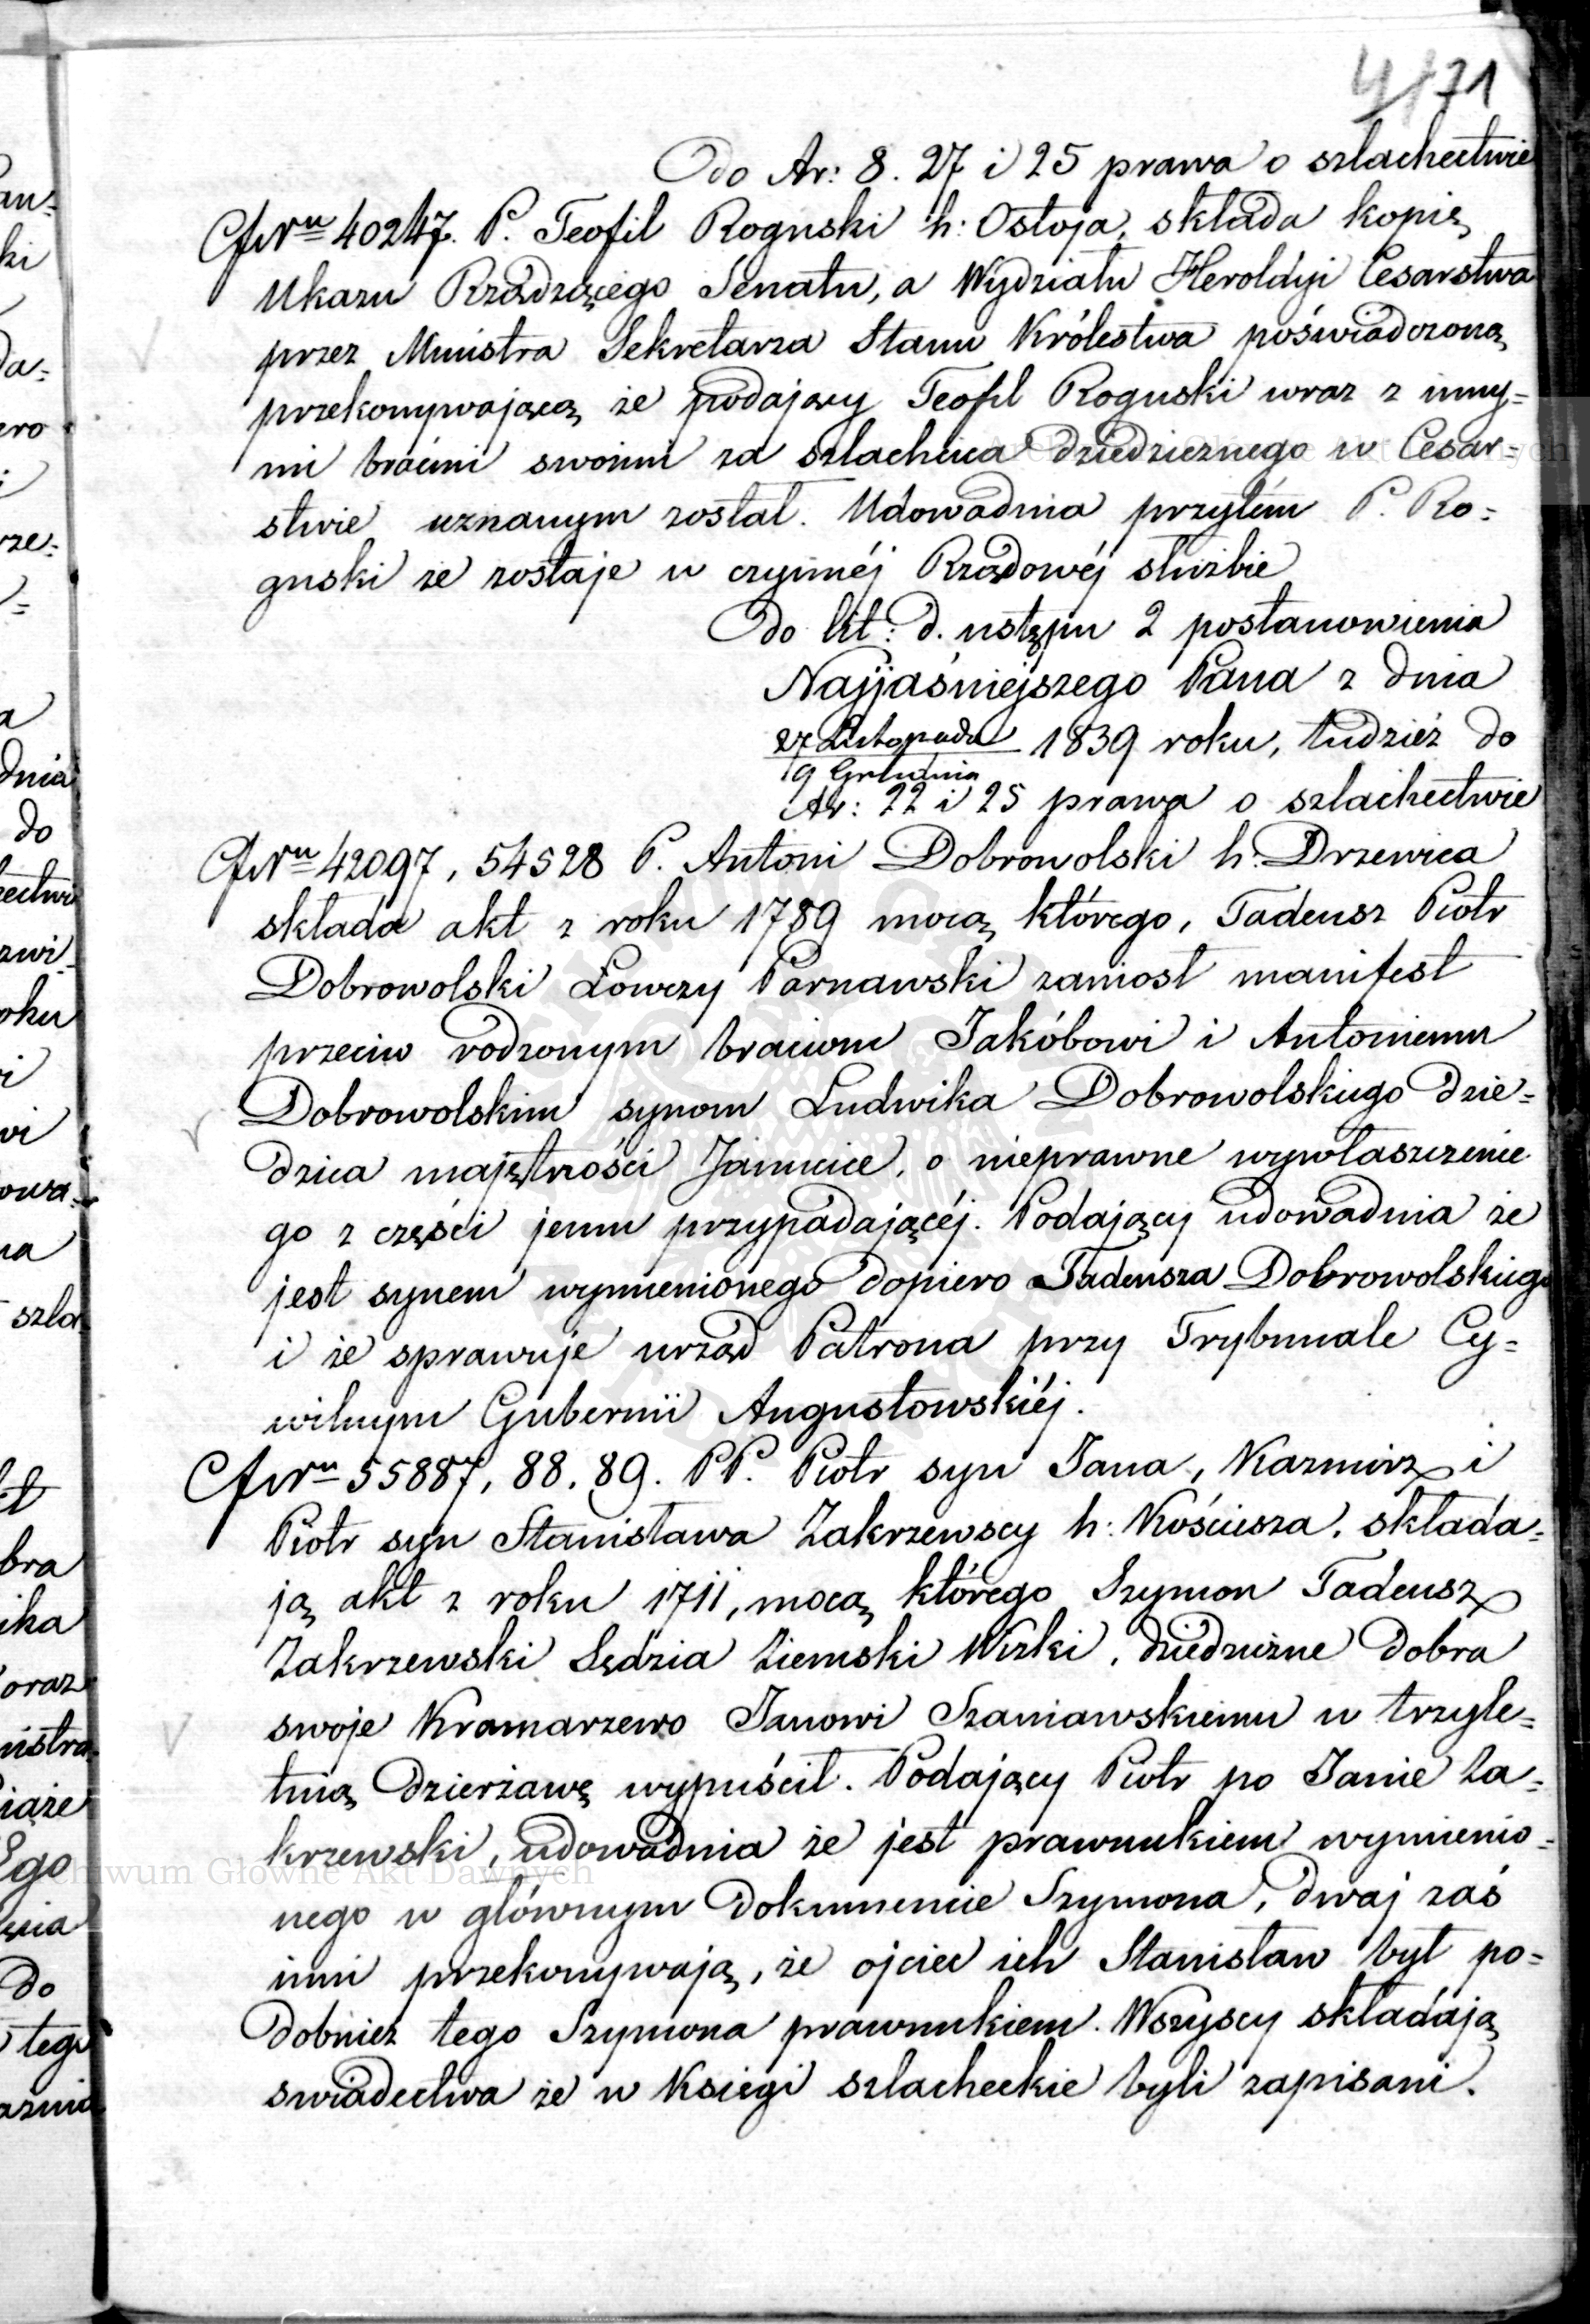 4/71
Do Ar: 8. 27 i 25 prawa o szlachectwie
Nru 40247. P. Teofil Roguski h: Ostoja, składa kopię
Ukazu Rządzącego Senatu, a Wydziału Heroldyi Cesarstwa
przez Ministra Sekretarza Stanu Królestwa poświadczoną,
przekonywającą że podający Teofil Roguski wraz z inny=
mi braćmi swoimi za szlachcica dziedzicznego w Cesar=
stwie uznanym został. Udowadnia przytém P. Ro=
guski że zostaje w czynnéj Rządowéj służbie
Do lit: d. ustępu 2 postanowienia
Najjaśniejszego Pana z dnia
27 Listopada
9 Grudnia 1839 roku, tudzież do
Ar: 22 i 25 prawa o szlachectwie
Nru 42097, 54528 P. Antoni Dobrowolski h: Drzewica
składa akt z roku 1789 mocą którego, Tadeusz Piotr
Dobrowolski Łowczy Parnawski zaniosł manifest
przeciw rodzonym braciom Jakóbowi i Antoniemu
Dobrowolskim synom Ludwika Dobrowolskiego dzie=
dzica majętności Janucice, o nieprawne wywłaszczenie
go z części jemu przypadającéj. Podający udowadnia że
jest synem wymienionego dopiero Tadeusza Dobrowolskiego
i że sprawuje urząd Patrona przy Trybunale Cy=
wilnym Gubernii Augustowskiéj.
Nru 55887, 88. 89. PP. Piotr syn Jana, Kazmirz i
Piotr syn Stanisława Zakrzewscy h: Kościesza, składa=
ją akt z roku 1711, mocą którego Szymon Tadeusz
Zakrzewski Sędzia Ziemski Wizki, dziedziczne dobra
swoje Kramarzewo Janowi Szaniawskiemu w trzyle=
tnią dzierżawę wypuścił. Podający Piotr po Janie Za=
krzewski, udowadnia że jest prawnukiem wymienio=
nego w głównym dokumencie Szymona, dwaj zaś
inni przekonywają, że ojciec ich Stanisław był po=
dobnież tego Szymona prawnukiem. Wszyscy składają
swiadectwa że w Księgi szlacheckie byli zapisani.
Archiwum Główne Akt Dawnych